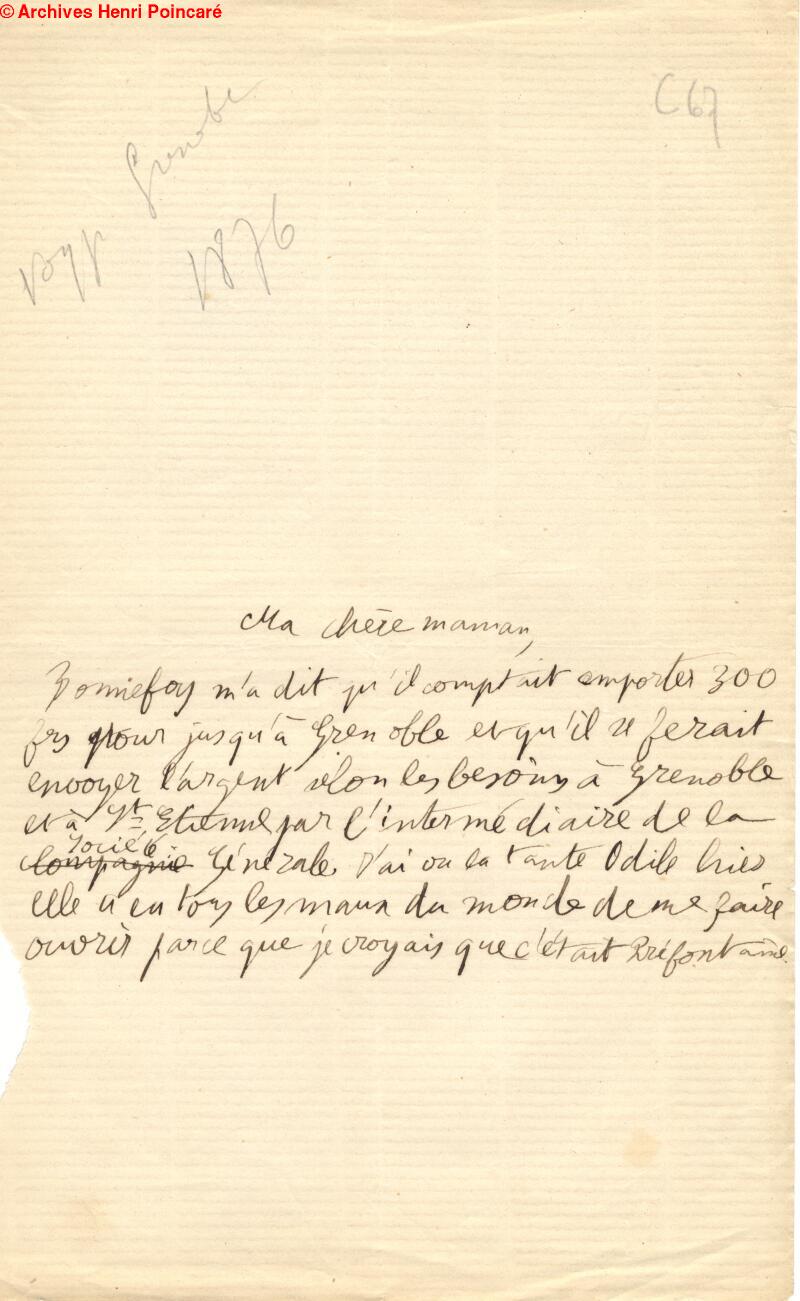 © Archives Henri Poincaré
C67
voy Grenoble
1876
Ma chère maman,
Bonnefoy m'a dit qu'il comptait emporter 300
frs pour jusqu'à Grenoble et qu'il se ferait
envoyer l'argent selon les besoins à Grenoble
et à St Etienne par l'intermédiaire de la
Société
Compagnie Générale. J'ai vu la tante Odile hier
elle a eu tous les maux du monde de me faire
ouvrir parce que je croyais que c'était Préfontaine.